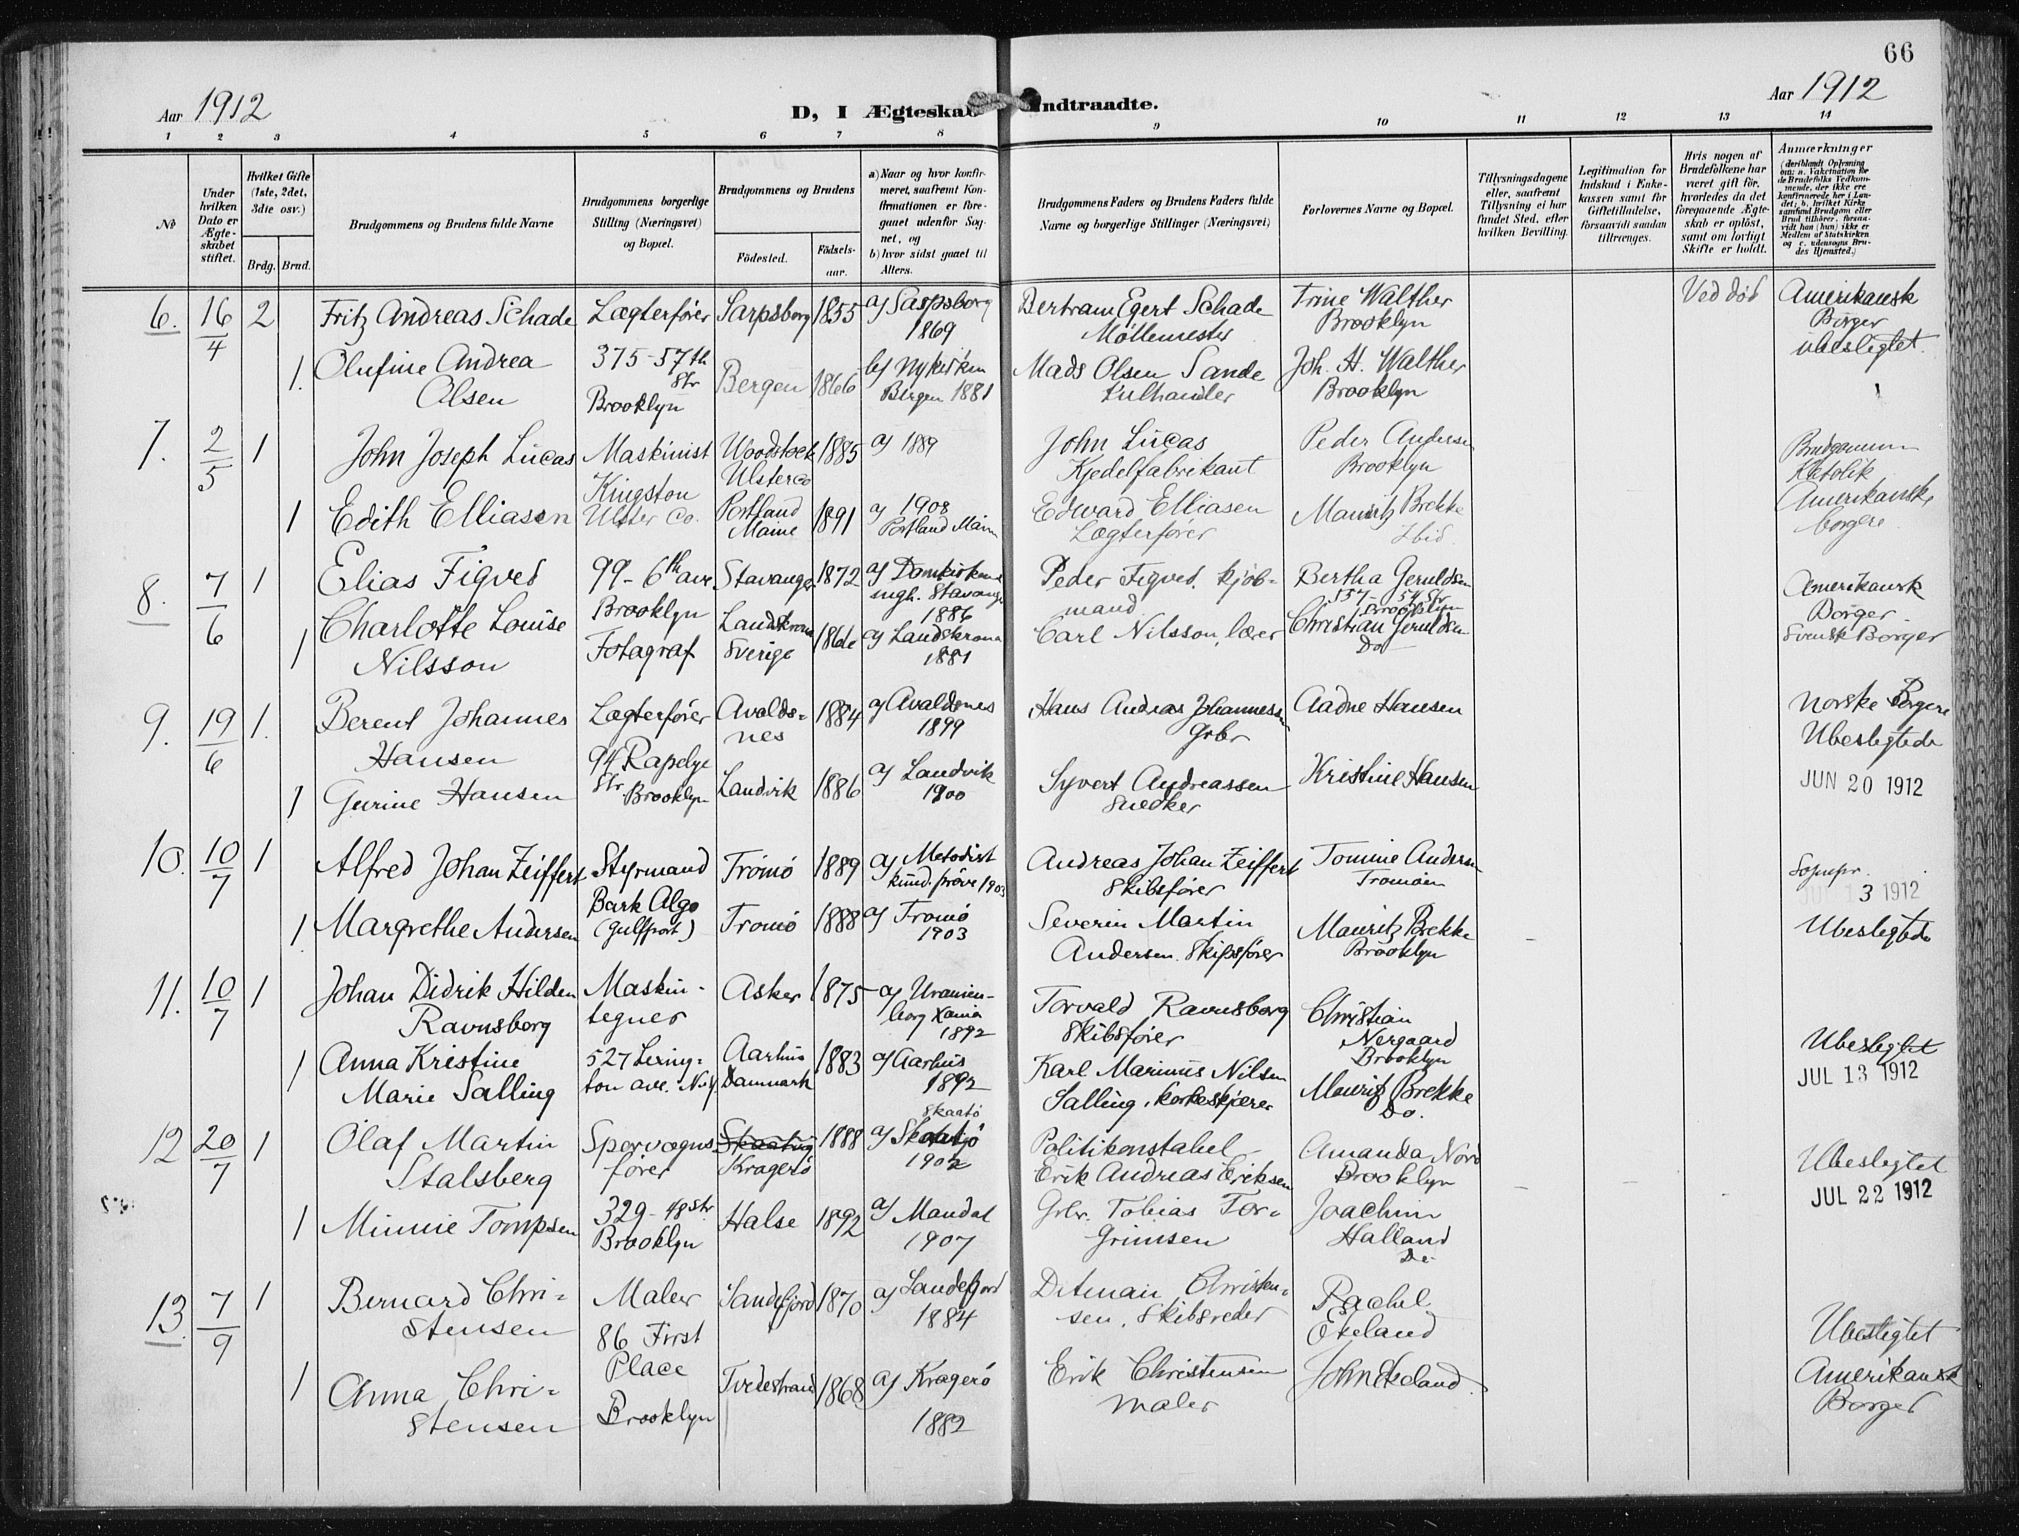 66
Aar 1912
D, I Ægteskab Indtraadte.
Aar 1912
1 2 3 4 5 6 7 8 9 10 11 12 13 14
No
Under hvilken Dato er Ægteskabet stiftet.
Hvilket Gifte (1ste, 2det, 3die osv.)
Brdg. Brud.
Brudgommens og Brudens fulde Navne
Brudgommens borgerlige Stilling (Næringsvei) og Bopæl.
Brudgommens og Brudens
Födested.
Födselsaar.
a) Naar og hvor konfirmeret, saafremt Konfirmationen er foregaaet udenfor Sognet, og
b) hvor sidst gaaet til Alters.
Brudgommens Faders og Brudens Faders fulde Navne og borgerlige Stillinger (Næringsvei)
Forlovernes Navne og Bopæl.
Tillysningsdagene eller, saafremt Tillysning ei har fundet Sted, efter hvilken Bevilling.
Legitimation for Indskud i Enkekassen samt for Giftetilladelse, forsaavidt saadan tiltrænges.
Hvis nogen af Brudefolkene har været gift för, hvorledes da det foregaaende Ægteskab er oplöst, samt om lovligt Skifte er holdt.
Anmærkninger
6. 16/4 2 Fritz Andreas Schade Lægterfører Sarpsborg 1855 a) Sarpsborg 1869 Bertram Egert Schade Møllemester Trine Walther Brooklyn Ved død Amerikansk Borger ubeslegtet.
1. Olufine Andrea Olsen 375-57th Str Brooklyn Bergen 1866 b) Nykirken Bergen 1881 Mads Olsen Sande Kulhandler Joh. H. Walther Brooklyn
7. 2/5 1 John Joseph Lucas Maskinist Woodstock Ulster Co 1885 a) 1889 John Lucas Kjedelfabrikant Peder Andersen Brooklyn Katolik
1 Edith Elliasen Kingston Ulster Co. Portland Maine 1891 a) 1908 Portland Main Edward Elliasen Lægterfører Mauritz Brekke Ibid. Amerikanske borgere
8. 7/6 1 Elias Figved 99-6th ave. Brooklyn Stavanger 1872 a) Domkirkens mgh. Stavanger 1886 Peder Figved, kjøbmand Bertha Geruldsen 557-54 Str Brooklyn Amerikansk Borger
1 Charlotte Louise Nilsson Fotograf Landskrona Sverige a) Landskrona 1881 Carl Nilsson, lærer Christian Geruldsen Do Svensk Borger
9. 19/6 1. Berent Johannes Hansen Lægterfører Avaldsnes 1884 a) Avaldsnes 1899 Hans Andreas Johannessen Grbr Aadne Hansen Norske Borgere Ubeslegtede
1 Gurine Hansen 94 Rapelye Str. Brooklyn Landvik 1886 a) Landvik 1900 Syvert Andreassen Snedker Kristine Hansen JUN 20 1912
10. 10/7 1 Alfred Johan Zeiffert Styrmand Tromö 1889 a) Metodist kund. prøve 1903 Andreas Johan Zeiffert Skibsfører Tomine Andersen Tromøen 3 1912
1. Margrethe Andersen Bark Algo (Gulfport) Tromö 1888 a) Tromö 1903 Severin Martin Andersen. Skibsfører Mauritz Brekke Brooklyn Ubeslegtede
11. 10/7 1 Johan Didrik Hilden Ravnsborg Maskintegner Asker 1875 a) Uranienborg Xania 1892 Torvald Ravnsborg Skibsfører Christian Nergaard Brooklyn Ubeslegtet
1 Anna Kristine Marie Salling 527 Lexington ave. N.Y. Aarhus Danmark 1883 a) Aarhus 1892 Karl Marinus Nilsen Salling, korkeskjærer Mauritz Brekke Do. JUL 13 1912
12 20/7 1 Olaf Martin Stalsberg Sporvognsfører Kragerö 1888 a) Skaatö 1902 Politikonstabel Erik Andreas Eriksen Amanda Nord Brooklyn Ubeslegtet JUL 22 1912
1 Minnie Tompsen 329-48 Str. Brooklyn Halse 1892 a) Mandal 1907 Grbr. Tobias Torgrimsen Joachim Halland Do.
13. 7/9 1 Bernard Christensen Maler Sandefjord 1870 a) Sandefjord 1884 Ditman Christensen, Skibsreder Rachel Ekeland Ubeslegtet
1 Anna Christensen 86 First Place Brooklyn Tvedestrand 1868 a) Kragerö 1882 Erik Christensen Maler John Ekeland. Amerikansk Borger